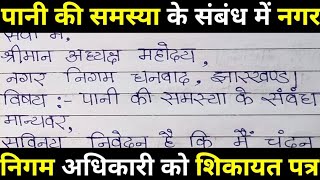 पानी की समस्या के संबंध में नगर
सेवा में,
श्रीमान अध्यक्ष महोदय,
नगर निगम धनबाद, झारखण्ड।
विषय :- पानी की समस्या के संबंध
मान्यवर,
सविनय निवेदन है कि मैं चंदन
निगम अधिकारी को शिकायत पत्र